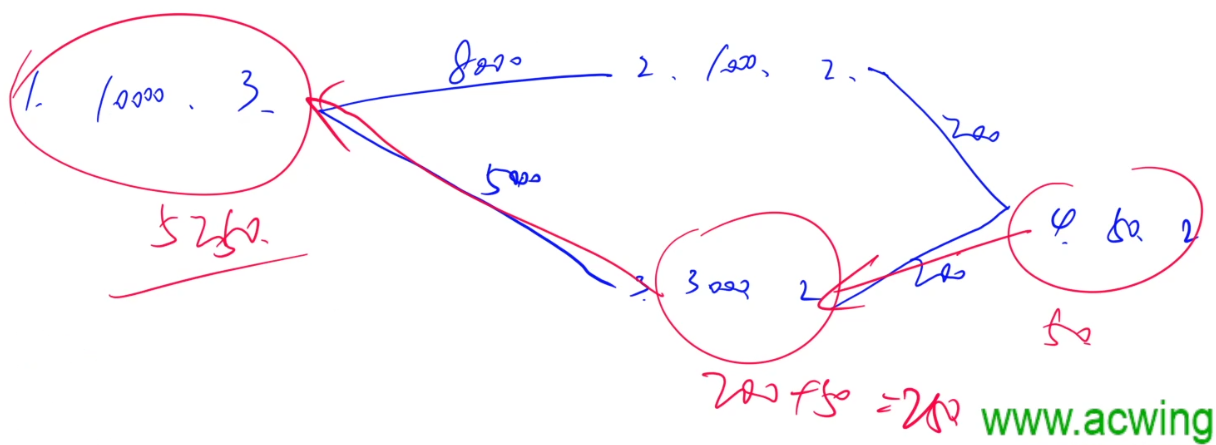 8000
1. 10000. 3.
2. 1000. 2.
200
5000
5250.
3. 3000 2
200
4. 50 2
50
200+50=250
www.acwing